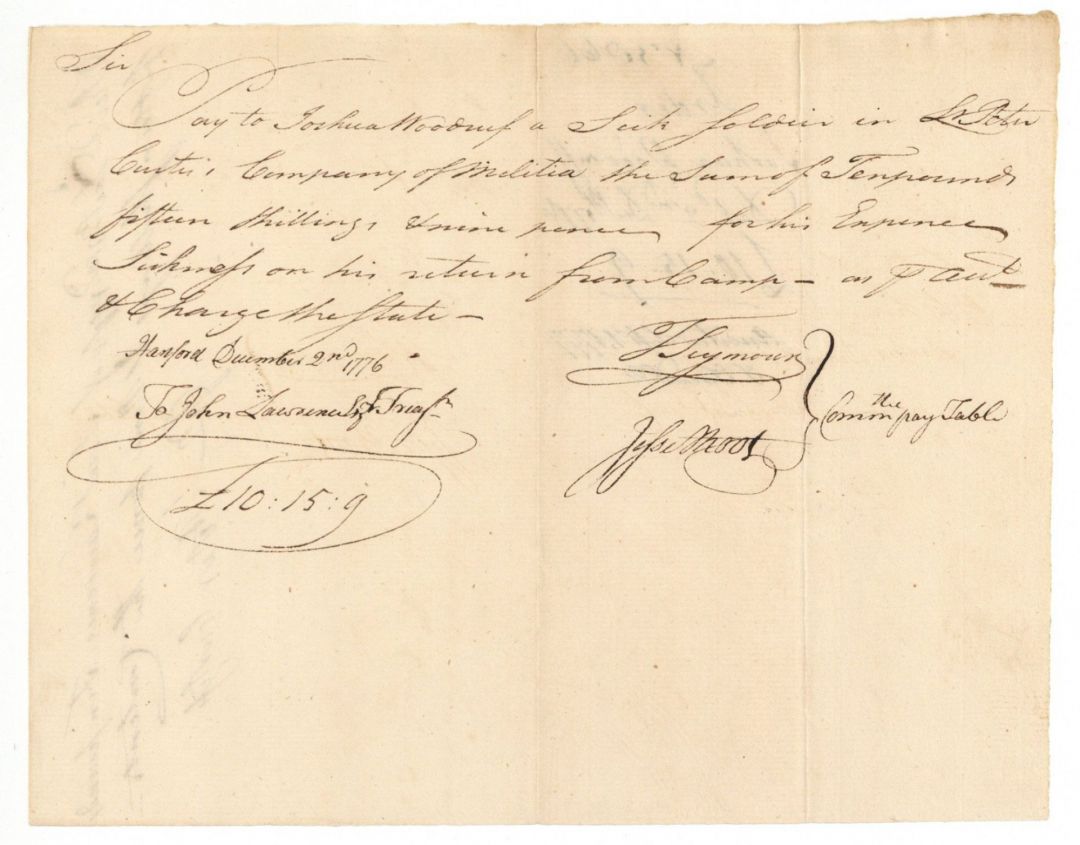 Sir
Pay to Joshua Woodruf a Sick Soldier in Lt Peter
Curtis's Company of Militia the Sum of Ten pounds
fifteen shillings & nine pence for his Expence
Sickness on his return from Camp – as pr Acct
& Charge the State –
Harford December 2nd 1776
To John Lawrence Esqr Treasr
£10:15:9
T Seymour
Jesse Root
the Commtt pay Table